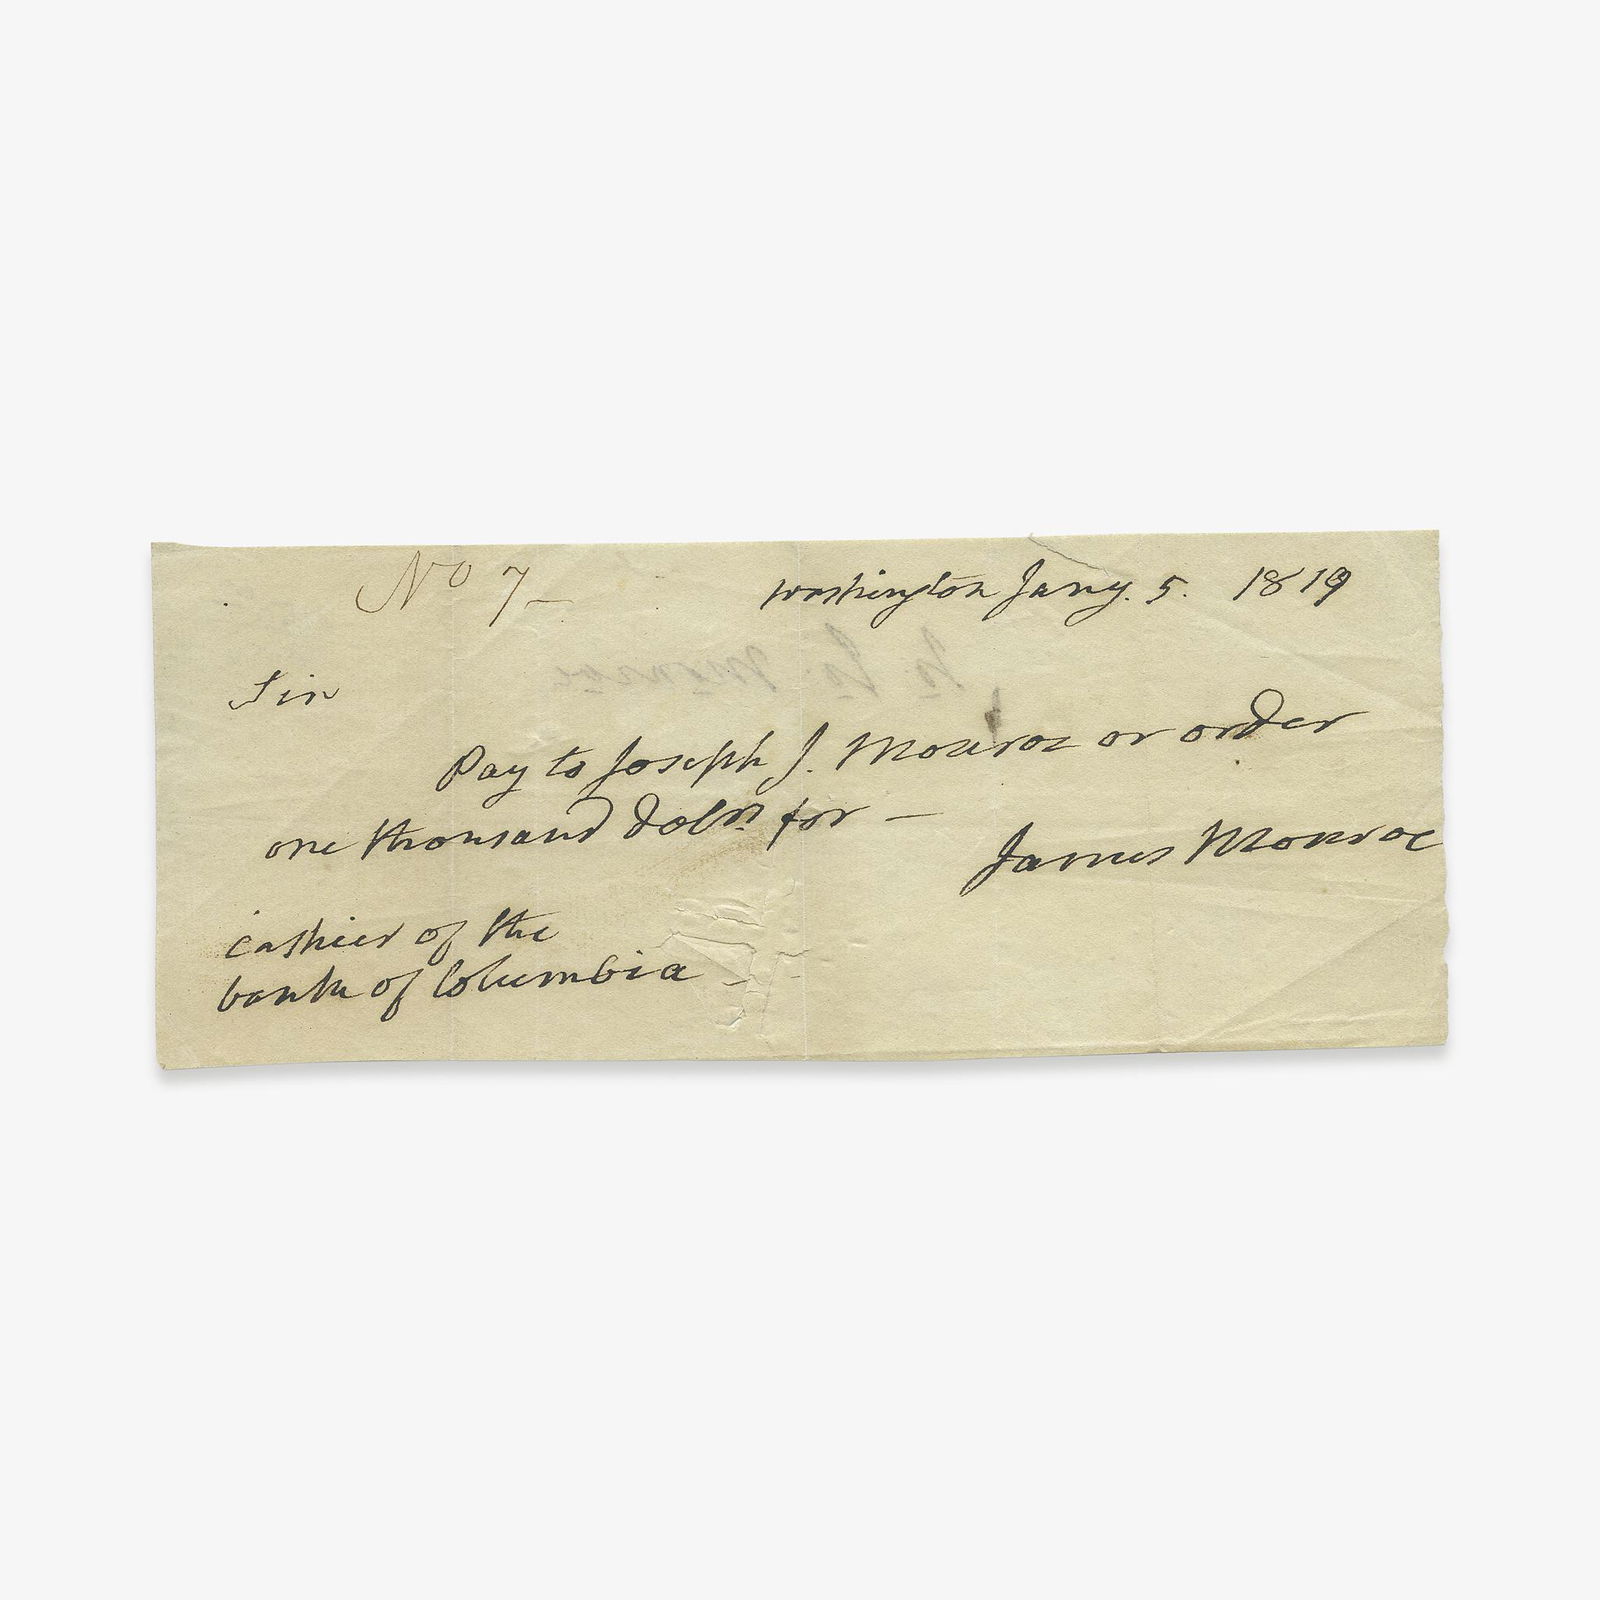 No 7 —
Washington Jany. 5. 1819
Sir
Pay to Joseph J. Monroe or order
one thousand dolrs for —
James Monroe
cashier of the
bank of Columbia